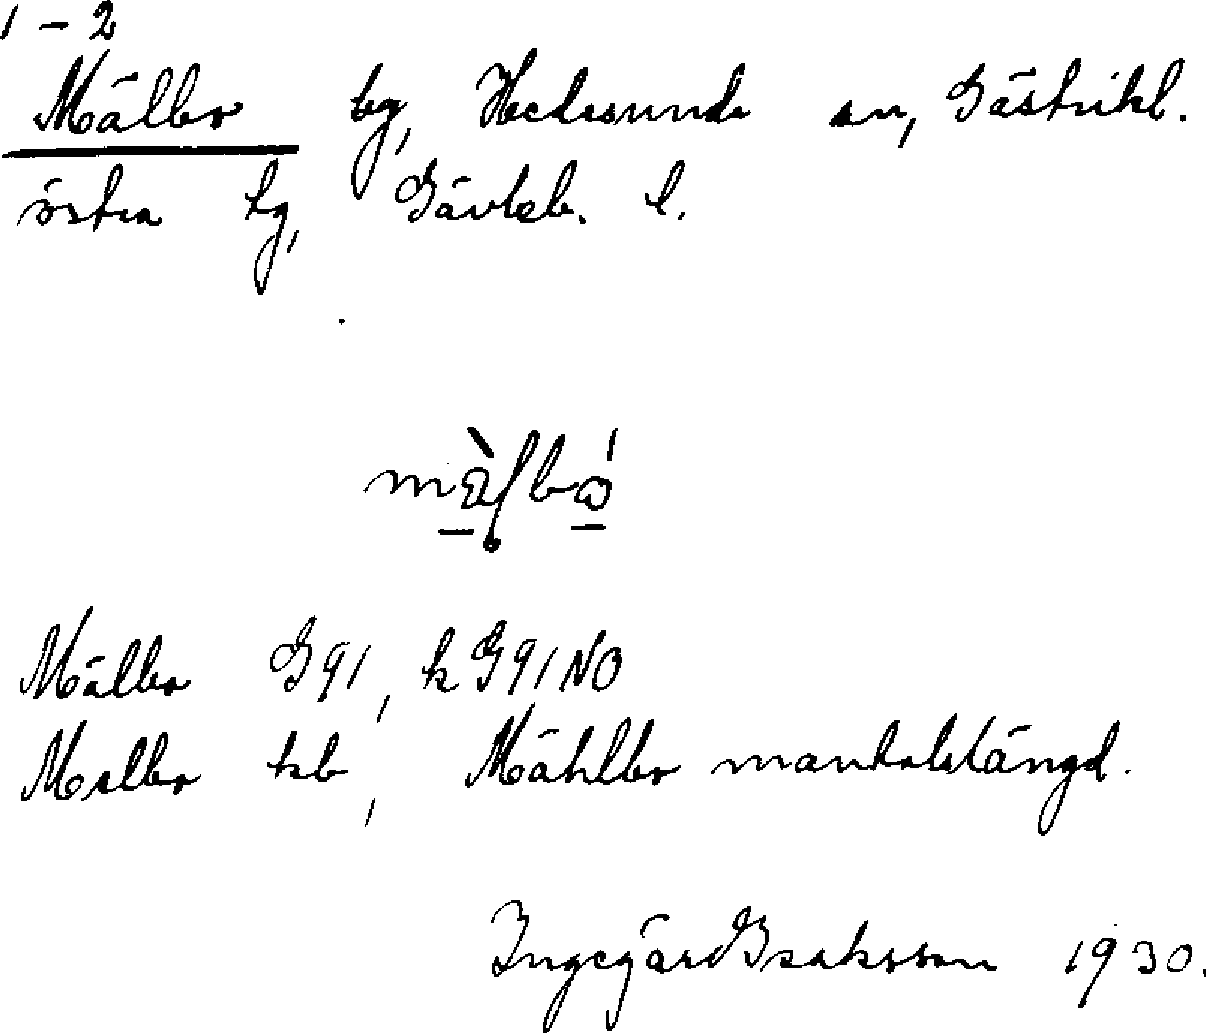 1 – 2
Mälbo by, Hedesunda sn, Gästrikl.
östra tg, Gävleb. l.
Mälbo G91, k G91NO
Melbo kb, Mählbo mantalslängd.
Ingegärd Isaksson 1930.